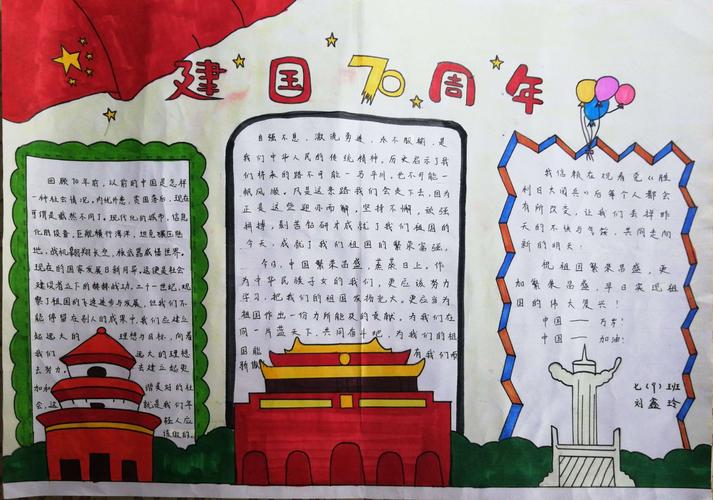 建国70周年
回顾70年前，以前的中国是怎样
一种社会情况，内忧外患，贫困落后，现在
可谓是截然不同了。现代化的城市，信息
化的设备，巨舰横行海洋，坦克碾压陆
地，战机翱翔长空，核武器威慑世界。
现在的国家发展日新月异，这便是社会
建设者立下的赫赫战功。二十一世纪，观
祭了祖国的飞速进步与发展，但我们不
能停留在别人的成果中，我们应建立
起远大的 理想与目标，向着
我们 远大的理想
去努力。 去建立起更
加和 谐美好的社
会，这 就是我们年
轻人应
该做的。
自强不息，激流勇进，永不服输，是
我们中华人民的传统精神，历史启示了我
们将来的路不可能一马平川，也不可能一
帆风顺。凡是这条路我们会走下去，因为
正是这些迎亦而解，坚持不懈，顽强
拼搏，刻苦钻研才成就了我们祖国的
今天，成就了我们祖国的繁荣富强。
今日，中国繁荣昌盛，蒸蒸日上。作
为中华民族子女的我们，更应该努力
学习，把我们的祖国发扬光大。更应当为
祖国作出一份力所能及的贡献。为我们在
同一片蓝天下，共同奋斗吧，为我们的祖
国能 有我们而
骄傲
我信赖在观看完《胜
利日大阅兵》后每个人都会
有所改变，让我们丢弃昨
天的不快与气馁，共同走向
新的明天！
祝祖国繁荣昌盛，更
加繁荣昌盛，早日实现祖
国的伟大复兴！
中国——万岁！
中国——加油！
七（9）班
刘鑫玲